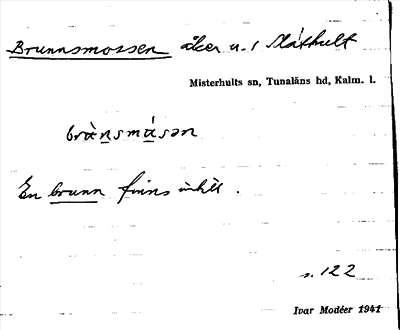 Brunnsmossen åker u. 1 Släthult
Misterhults sn, Tunaläns hd, Kalm. l.
brànsmásən
En brunn finns intill.
s. 122
Ivar Modéer 1941